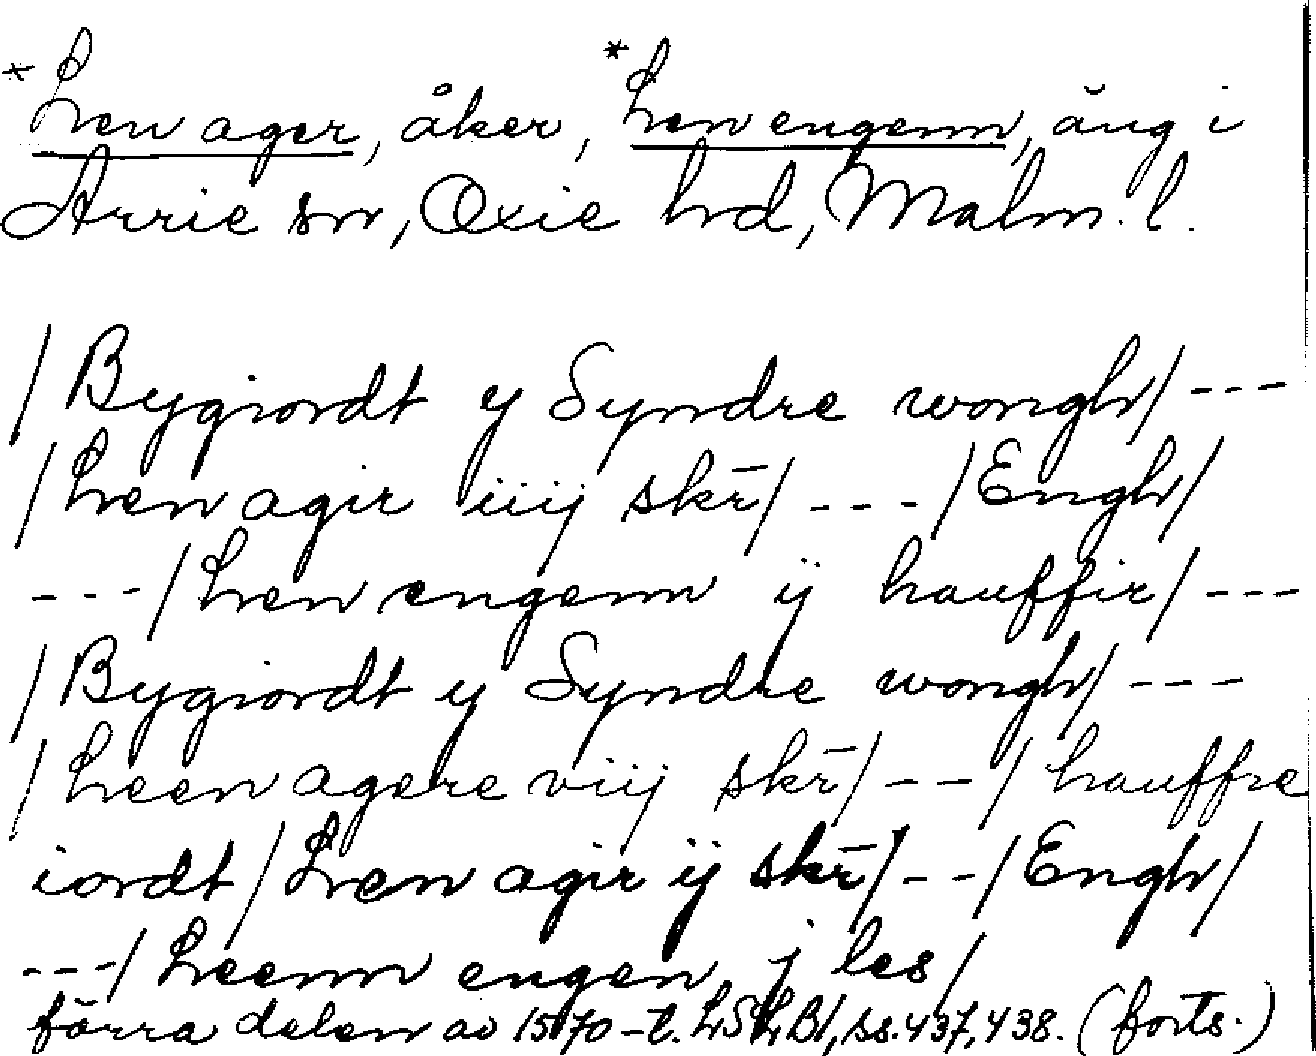 *Hen ager, åker, *Hen engenn, äng i
Arrie sn, Oxie hd, Malm. l.
/Bygiordt y Syndre wongh/ ---
/Hen agir iiij skr̄/ ---/Engh/
---/Hen engenn ij hauffir/ ---
/Bygiordt y Syndre wongh/ ---
/heen agere viij skr̄/ ---/ hauffre
iordt/Hen agir ij skr̄/ ---/Engh/
---/ heenn engen j les/
förra delen av 1570-t. LSLB1, ss. 437, 438. (forts.)